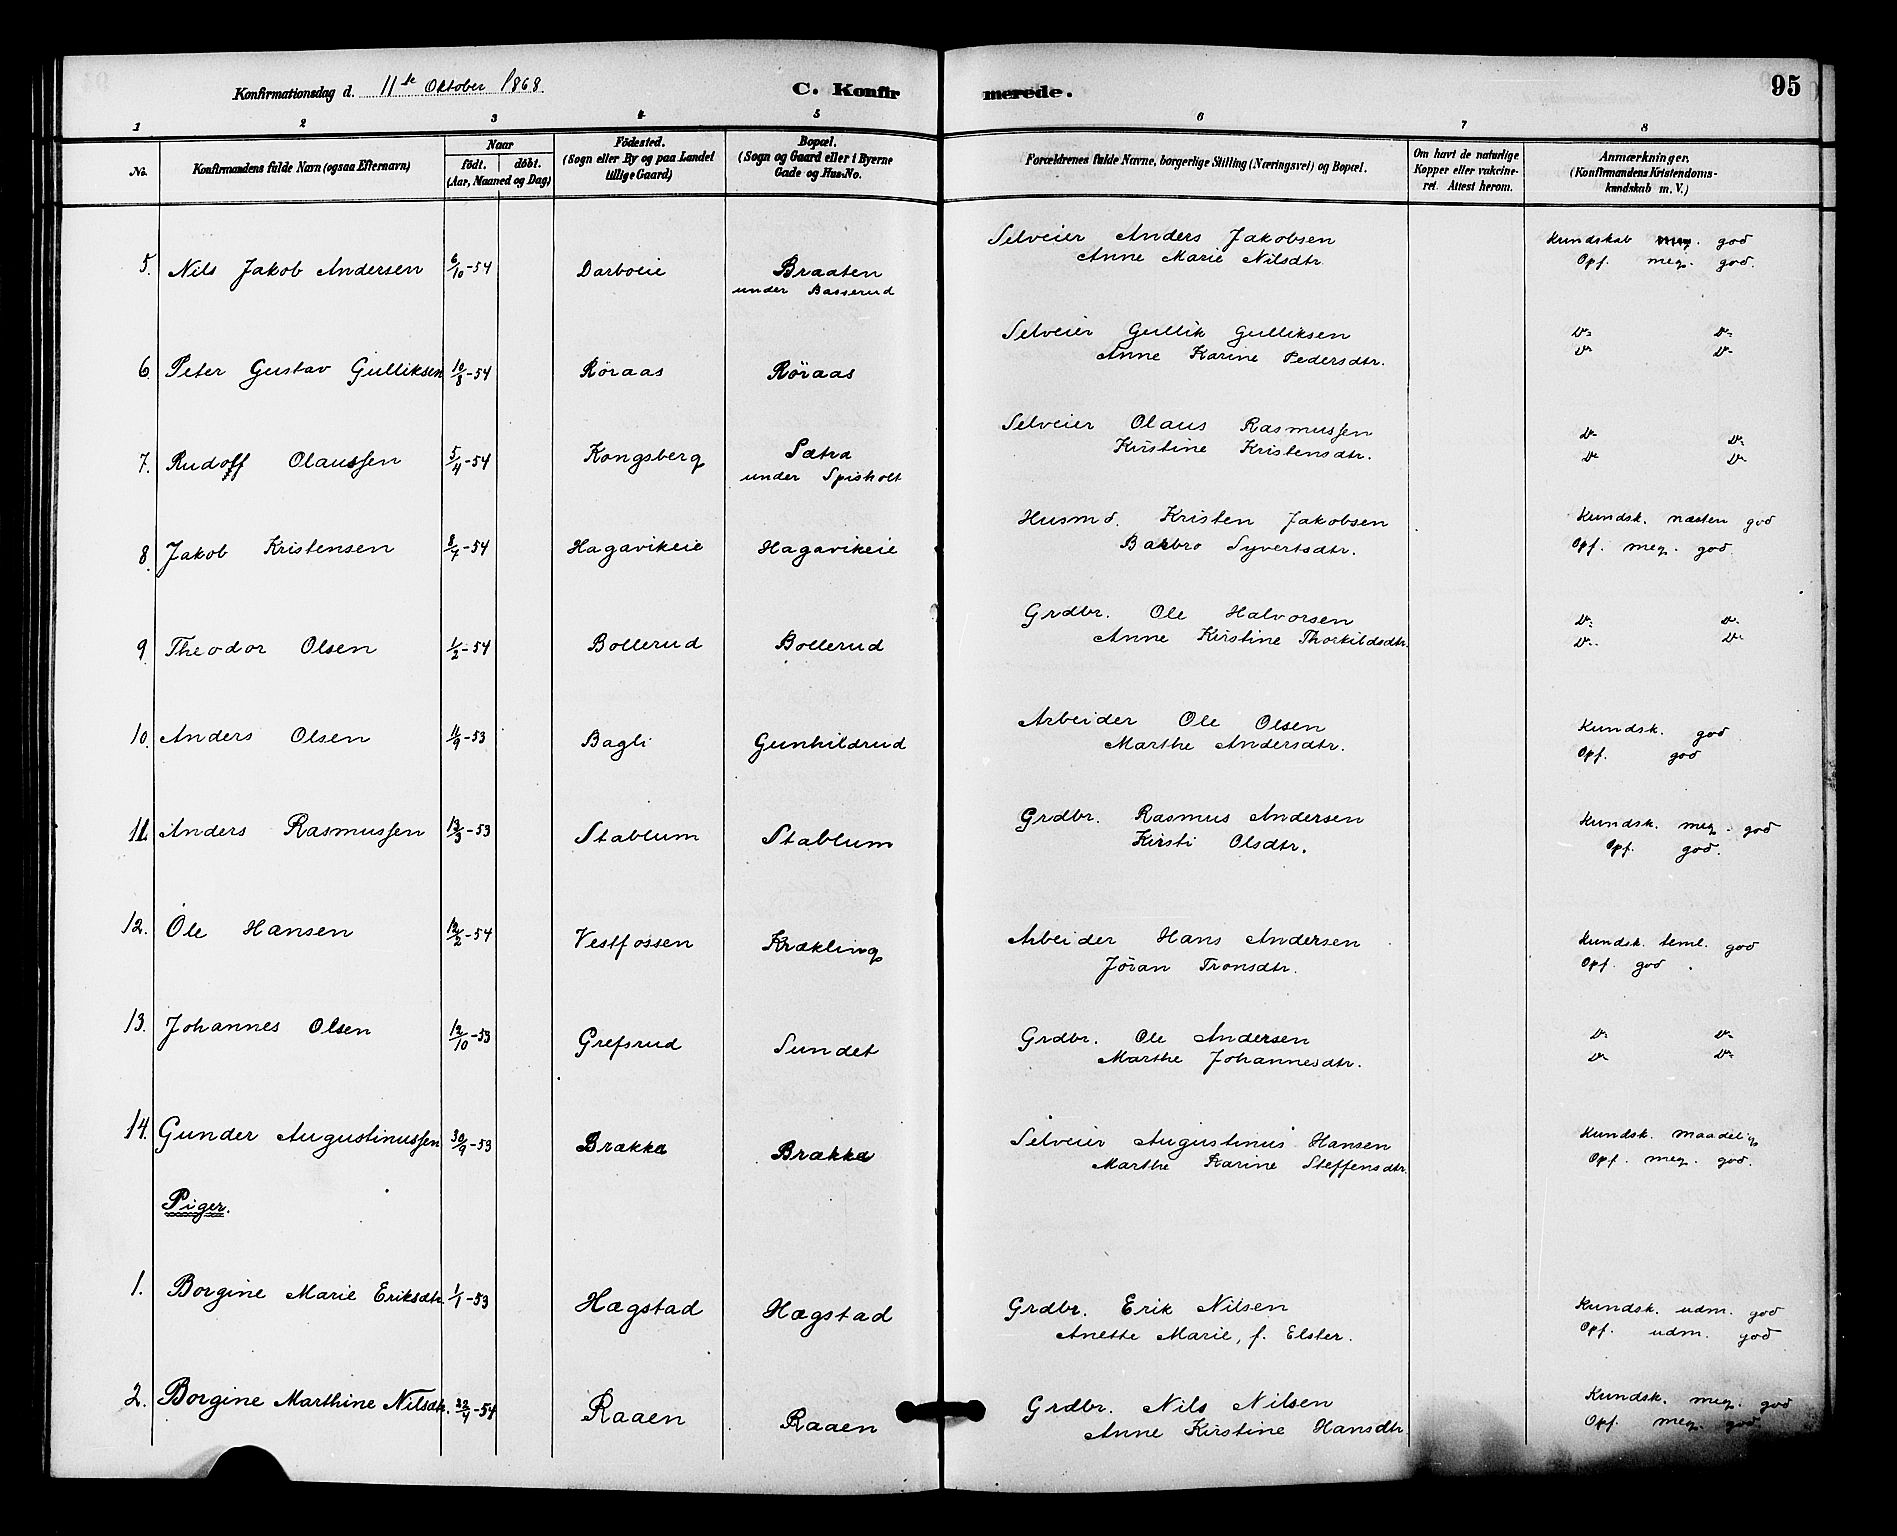 Konfirmationsdag d. 11te Oktober 1868. C. Konfirmerede. 95
1 2 3 4 5 6 7 8
No. Konfirmandens fulde Navn (ogsaa Efternavn) Naar født. døbt. (Aar, Maaned og Dag) Fødested. (Sogn eller By og paa Landet tillige Gaard) Bopæl. (Sogn og Gaard eller i Byerne Gade og Hus-No. Forældrenes fulde Navne, borgerlige Stilling (Næringsvei) og Bopæl. Om havt de naturlige Kopper eller vakcineret. Attest herom. Anmærkninger. (Konfirmandens Kristendomskundskab m. V.)
Selveier Anders Jakobsen Kundskab meg. god
5. Nils Jakob Andersen 6/10-54 Darboeie Braaten Anne Marie Nilsdtr. Opf. meg. god.
under Basserud
Selveier Gullik Gulliksen Do Do
6. Peter Gustav Gulliksen 10/8-54 Røraas Røraas Anne Karine Pedersdtr. Do Do
Selveier Olaus Rasmussen Do Do
7. Rudolf Olaussen 5/4-54 Kongsberg Sætra Kristine Kristensdtr. Do Do
under Spisholt
Husmd. Kristen Jakobsen Kundsk. næsten god
8. Jakob Kristensen 8/7-54 Hagavikeie Hagavikeie Barbro Syvertsdtr. Opf. meg. god.
Grdbr. Ole Halvorsen Do Do
9. Theodor Olsen 1/2-54 Bollerud Bollerud Anne Kirstine Thorkildsdtr. Do Do
Arbeider Ole Olsen Kundsk. god
10. Anders Olsen 11/9-53 Bagli Gunhildrud Marthe Andersdtr. Opf. god
Grdbr. Rasmus Andersen Kundsk. meg. god
11. Anders Rasmussen 13/3-53 Stablum Stablum Kirsti Olsdtr. Opf. god.
12. Ole Hansen 12/2-54 Vestfossen Krækling Arbeider Hans Andersen Kundsk. teml. god
Jøran Tronsdtr. Opf. god.
13. Johannes Olsen 12/10-53 Grefsrud Sundet Grdbr. Ole Andersen Do Do
Marthe Johannesdtr. Do Do
14. Gunder Augustinussen 30/9-53 Brækka Brækka Selveier Augustinus Hansen Kundsk. maadelig
Marthe Karine Steffensdtr. Opf. meg. god.
Piger.
1. Borgine Marie Eriksdtr. 1/1-53 Hægstad Hægstad Grdbr. Erik Nilsen Kundsk. udm. god
Anette Marie, f. Elster. Opf. udm. god
2. Borgine Marthine Nilsdtr. 22/4-54 Raaen Raaen Grdbr. Nils Nilsen Kundsk. meg. god
Anne Kirstine Hansdtr Opf. meg. god.